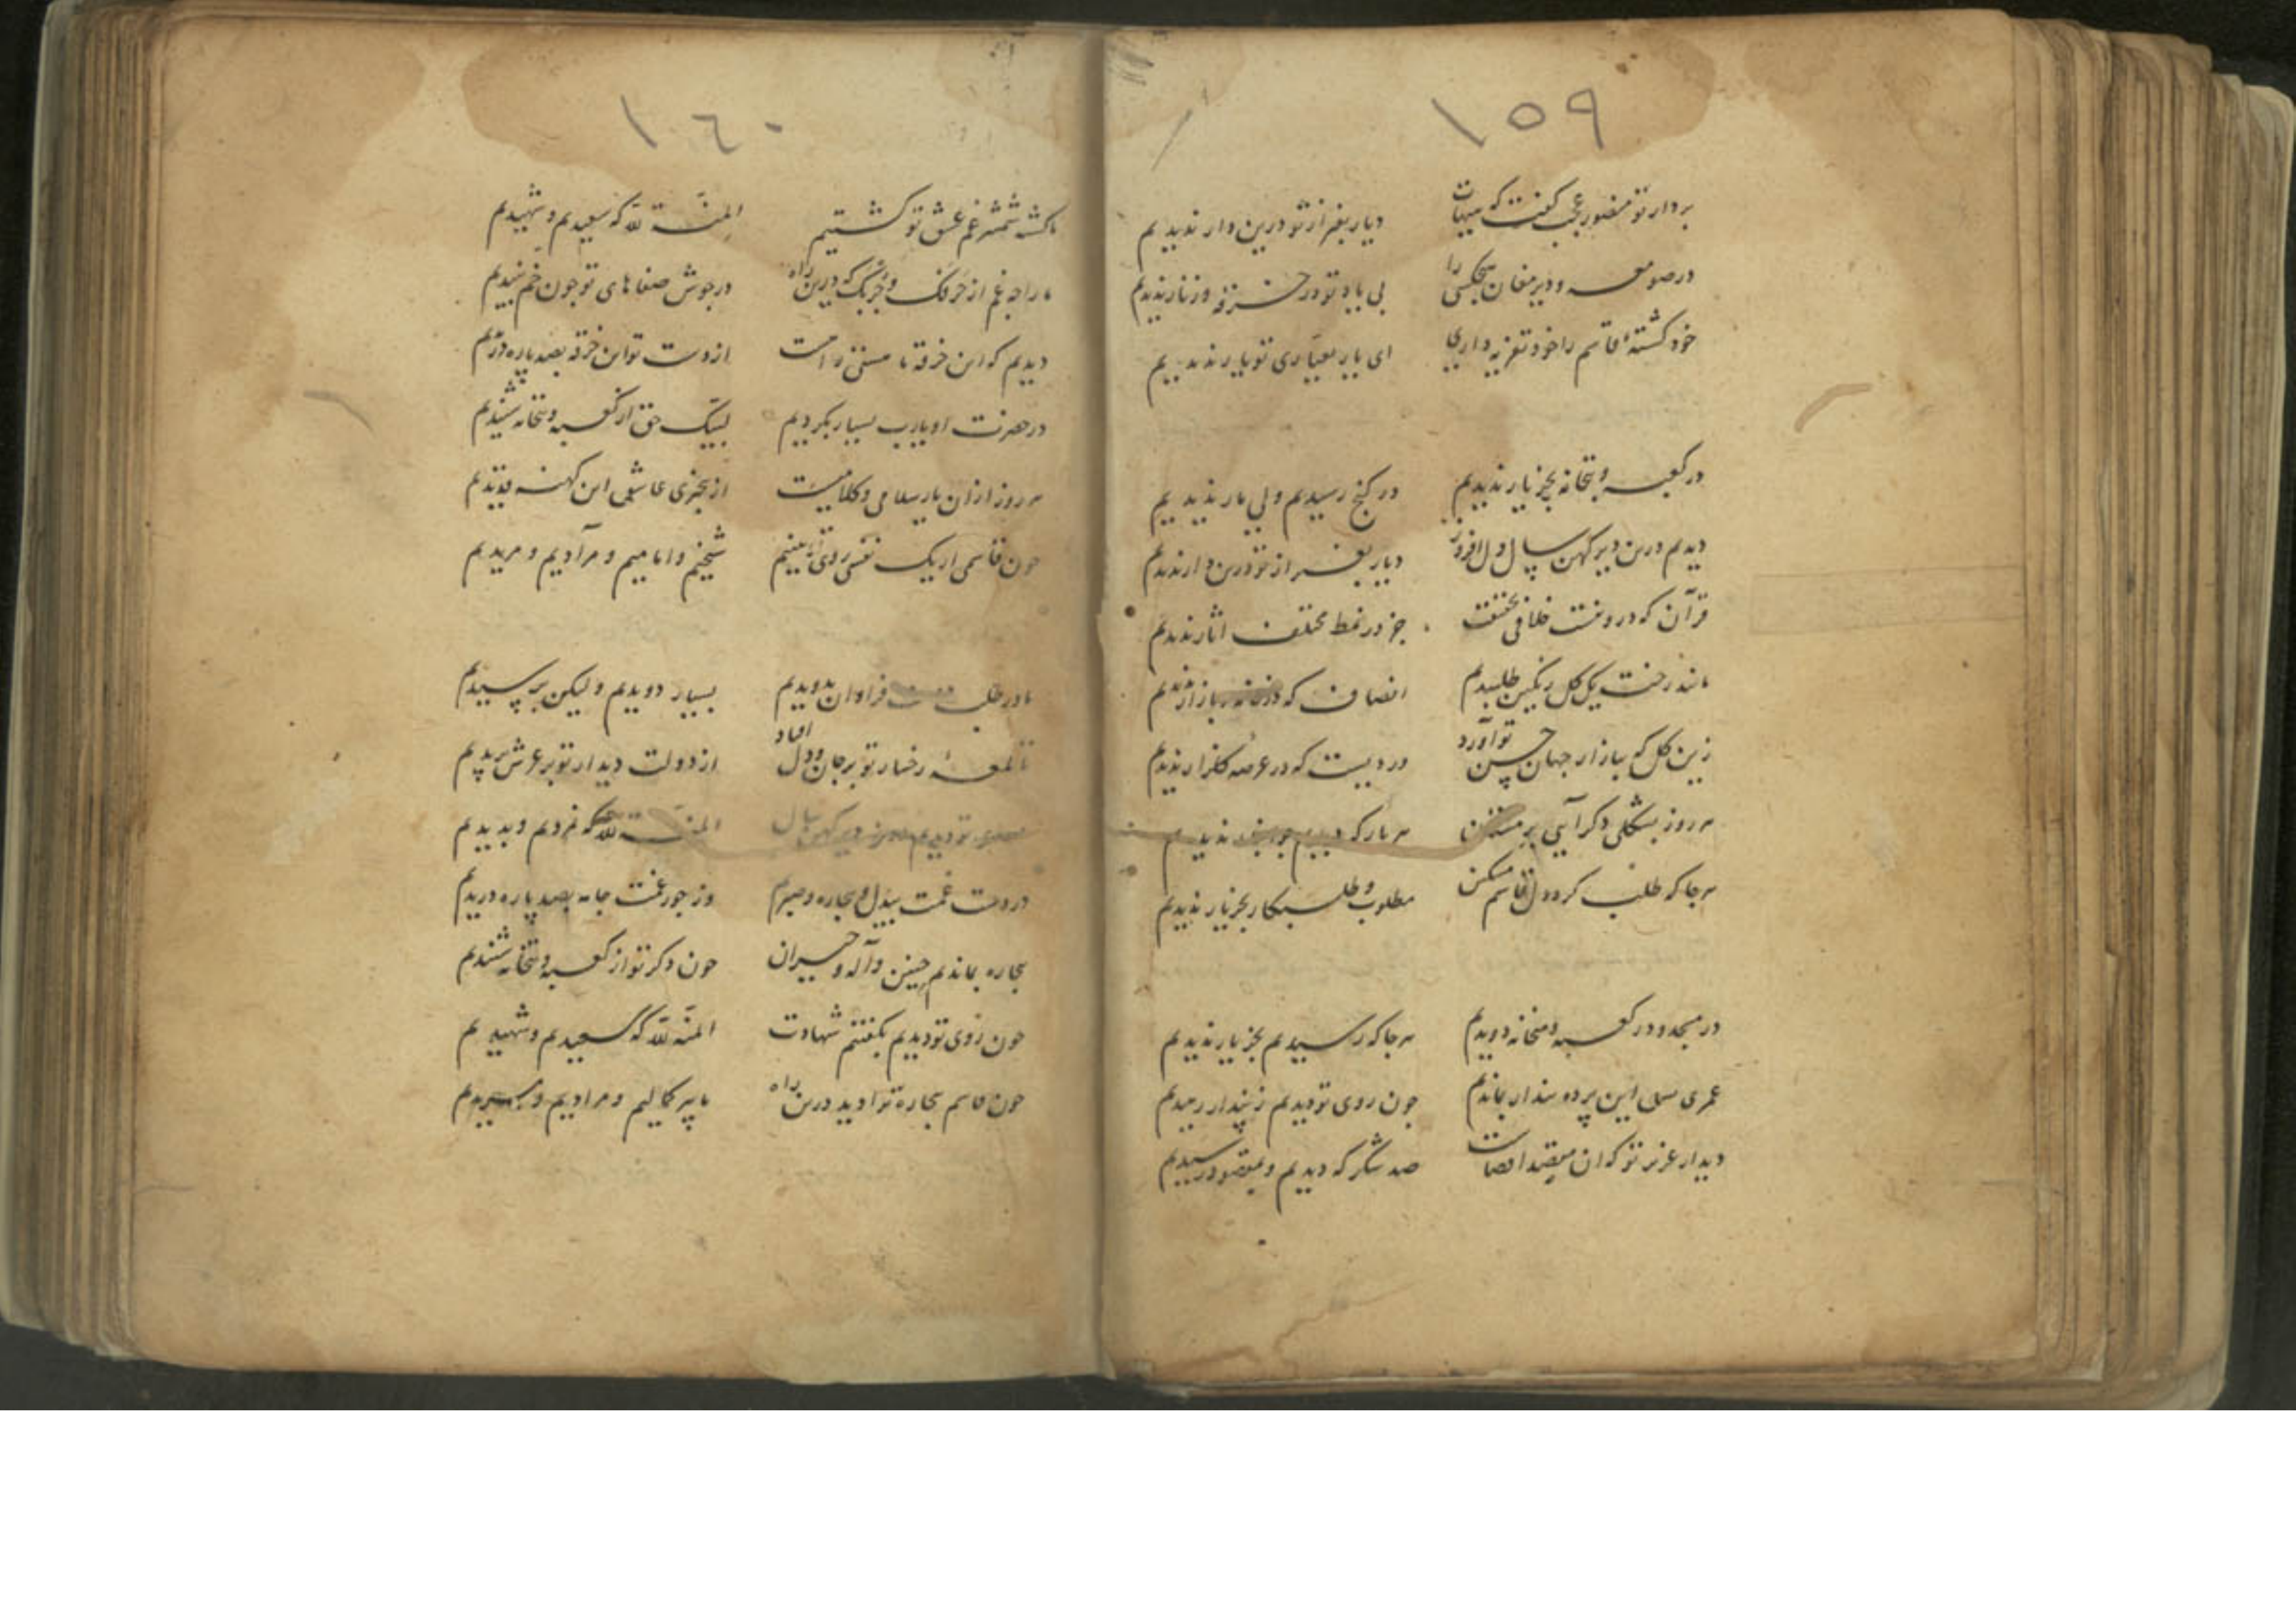 ١٥٩
بردار تو منصور عجب گفت که هیهات
دیار بغیر از تو درین دار ندیدیم
در صومعه و دیر مغان هیچکسی را
بی یاد تو در خرقه و زنار ندیدیم
خود کشته قاسم را خود تعزیه داری
ای یار بعیاری تو یار ندیدیم
در کعبه و بتخانه بجز یار ندیدیم
در کنج رسیدیم ولی مار ندیدیم
دیدیم درین دیر کهن سال دل افروز
دیار بغیر از تو درین دار ندیدیم
قرآن که درو نیست خلافی بحقیقت
جز در نمط مختلف اثار ندیدیم
مانند رخت یک گل رنگین طلبیدیم
انصاف که در بازار ندیدیم
زین گل که ببازار جهان حسن تو آورد
دردیست که در عرصه گلزار ندیدیم
هر روز بشکلی دگر آیی بر مستان
هر بار که دیدیم ندیدیم
هر جا که طلب کرد دل قاسم مسکین
مطلوب و طلبکار بجز یار ندیدیم
در مسجد و در کعبه و میخانه دویدیم
هر جا که رسیدیم بجز یار ندیدیم
عمری پس این پرده پندار بماندیم
چون روی تو دیدیم ز پندار رهیدیم
دیدار عزیز تو که آن مقصد اقصاست
صد شکر که دیدیم و بمقصود رسیدیم
١٦٠
ما کشته شمشیر غم عشق تو گشتیم
المنة لله که سعیدیم و شهیدیم
ما را چه غم از خرقک و خربک که درین راه
در جوش صفاهای تو چون خم نبیدیم
دیدیم که این خرقه ما مستی راست
از دست تو این خرقه بصد پاره دریدیم
در حضرت او یارب بسیار بکردیم
لبیک حق از کعبه و بتخانه شنیدیم
هر روز ازان یار سلامی و کلامیست
از بیخبری عاشق این کهنه قدیدیم
چون قاسمی ار یک نفسی روی تو بینیم
شیخیم و امامیم و مرادیم و مریدیم
ما در طلبت فراوان بدویدیم
بسیار دویدیم ولیکن برسیدیم
تا لمعه رخسار تو بر جان و دل افتاد
از دولت دیدار تو بر عرش پریدیم
تو دیدیم درین دیر کهن سال
المنة لله که نمردیم و بدیدیم
در دست غمت بیدل و بیچاره و صبرم
وز جور غمت جامه بصد پاره دریدیم
بیچاره بماندیم چنین واله و حیران
چون ذکر تو از کعبه و بتخانه شنیدیم
چون روی تو دیدیم بگفتیم شهادت
المنة لله که سعیدیم و شهیدیم
چون قاسم بیچاره ترا دید درین راه
ما پیر کمالیم و مرادیم و مریدیم